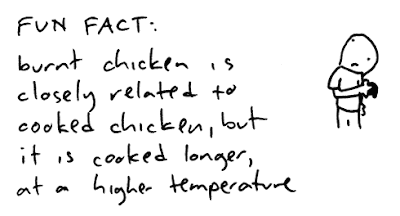 FUN FACT:
burnt chicken is
closely related to
cooked chicken, but
it is cooked longer,
at a higher temperature